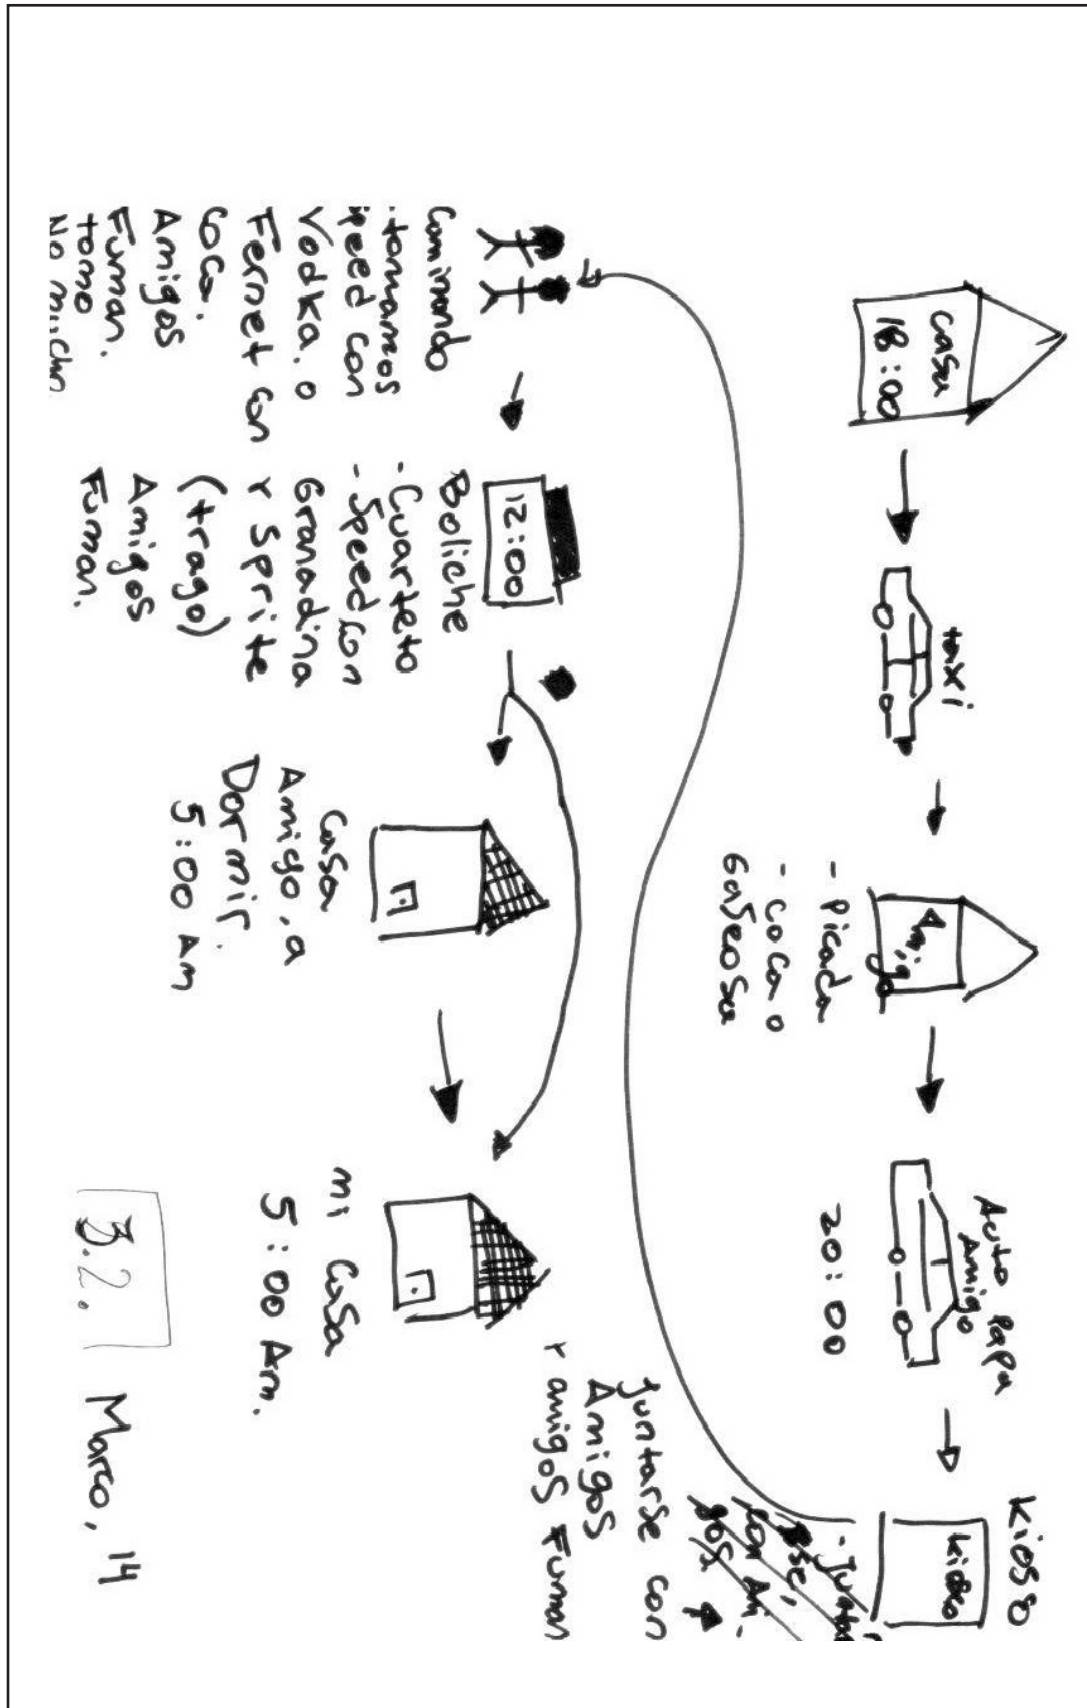 Casa
18:00
taxi
Amigo
- Picada
- Coca o
Gaseosa
Auto Papa
Amigo
20:00
Kiosso
kiosko
- Juntar
rse,
con Ami-
gos
Juntarse con
Amigos
y amigos Fuman
Caminando
-tomamos
speed con
Vodka. o
Fernet con
Coca.
Amigos
Fuman.
tomo
No mucho
12:00
Boliche
- Cuarteto
- Speed con
Granadina
y Sprite
(trago)
Amigos
Fuman.
Casa
Amigo, a
Dormir.
5:00 Am
mi Casa
5:00 Am.
3.2.
Marco, 14